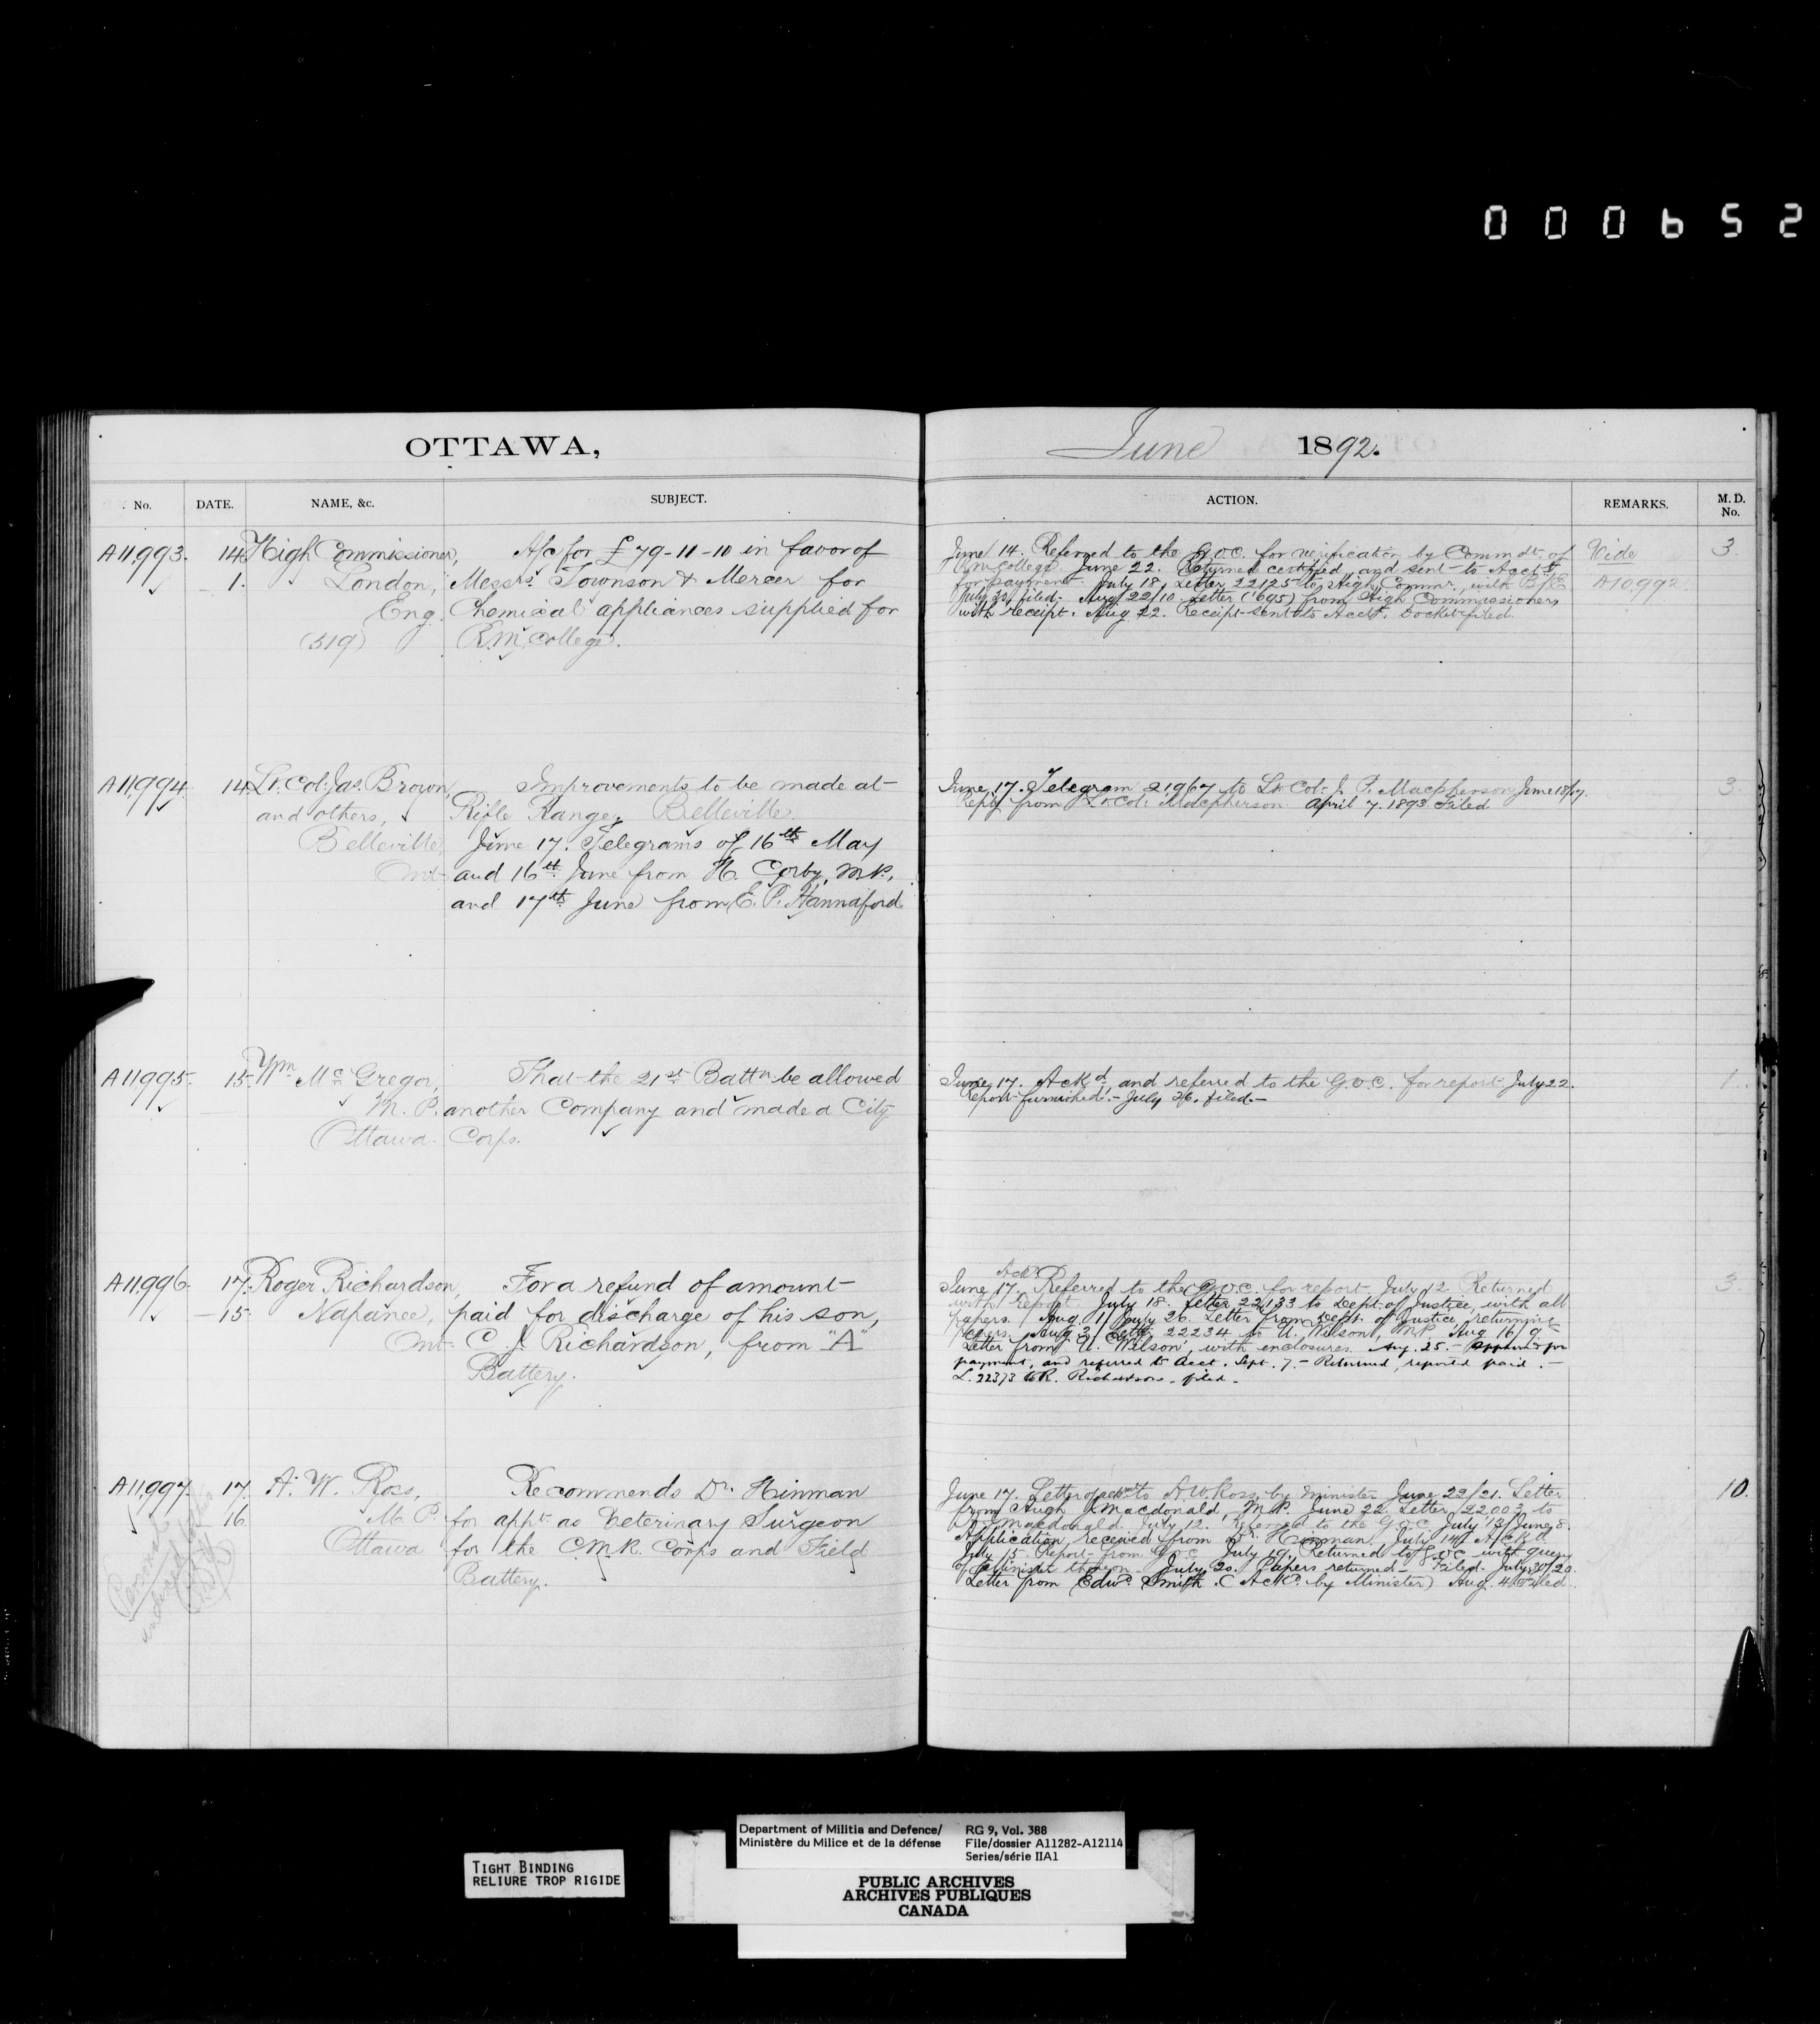 000652
OTTAWA,
June 1892.
No. DATE. NAME, &c. SUBJECT.
ACTION. REMARKS. M. D. No.
A11,993. 14 High Commissioner, A/c for £79-11-10 in favor of
1. London, Messrs. Townson & Mercer for
Eng. Chemical appliances supplied for
(519) R.M. College.
June 14. Referred to the G.O.C. for verification by Commdt. of Vide 3.
R.M. College. June 22. Returned certified, and sent to Acct. A10,992
for payment. July 18, Letter 22125 to High Commr., with B/E
July 30, filed. Aug 22/10 Letter (1695) from High Commissioners
with receipt. Aug 22. Receipt sent to Acct. Docket filed.
A11,994. 14 Lt. Col. Jas. Brown, Improvements to be made at
and others, Rifle Range, Belleville.
Belleville, June 17. Telegrams of 16th May
Ont. and 16th June from H. Corby, M.P.,
and 17th June from E. P. Hannaford.
June 17. Telegram 21967 to Lt. Col. J. P. Macpherson June 18/17. 3.
Reply from Lt. Col. Macpherson April 7. 1893 Filed
A11,995. 15. Wm. McGregor, That the 21st Battn. be allowed
M. P. another Company and made a City
Ottawa. Corps.
June 17. Ackd. and referred to the G.O.C. for report July 22. 1.
Report furnished. - July 26. filed. -
A11,996. 17. Roger Richardson, For a refund of amount
15. Napanee, paid for discharge of his son,
Ont. C. J. Richardson, from "A"
Battery.
Ackd.
June 17. Referred to the G.O.C. for report July 12 Returned 3
with report. July 18. Letter 22,133 to Dept. of Justice, with all
papers. Aug 1/July 26. Letter from Dept. of Justice, returning
papers. Aug 3, Letter 22234 to U. Wilson, M.P. Aug 16/9
Letter from U. Wilson, with enclosures. Aug. 25. - Approved for
payment, and referred to Acct. Sept. 7. - Returned, reported paid. -
L. 22373 to R. Richardson. filed.
A11,997. 17. A. W. Ross, Recommends Dr. Hinman
16. M. P. for appt. as Veterinary Surgeon
Ottawa for the C.M.R. Corps and Field
Battery.
Personal
June 17. Letter of ackmt. to A. W. Ross, by Minister June 22/21. Letter 10.
from Hugh J. Macdonald, M.P. June 22. Letter 22,003 to
Macdonald. July 12. referred to the G.O.C. July 13/June 8.
Application received from Dr. Hinman. July 14. Ackd.
July 15. Report from G.O.C. July 19. Returned to G.O.C. with query
of Minister thereon. July 20. Papers returned - Filed. July 30/20
Letter from Edwd. Smith. (Ackd. by Minister) Aug. 4 Filed.
Department of Militia and Defence/ RG 9, Vol. 388
Ministère du Milice et de la défense File/dossier A11282-A12114
Series/série IIA1
TIGHT BINDING
RELIURE TROP RIGIDE
PUBLIC ARCHIVES
ARCHIVES PUBLIQUES
CANADA